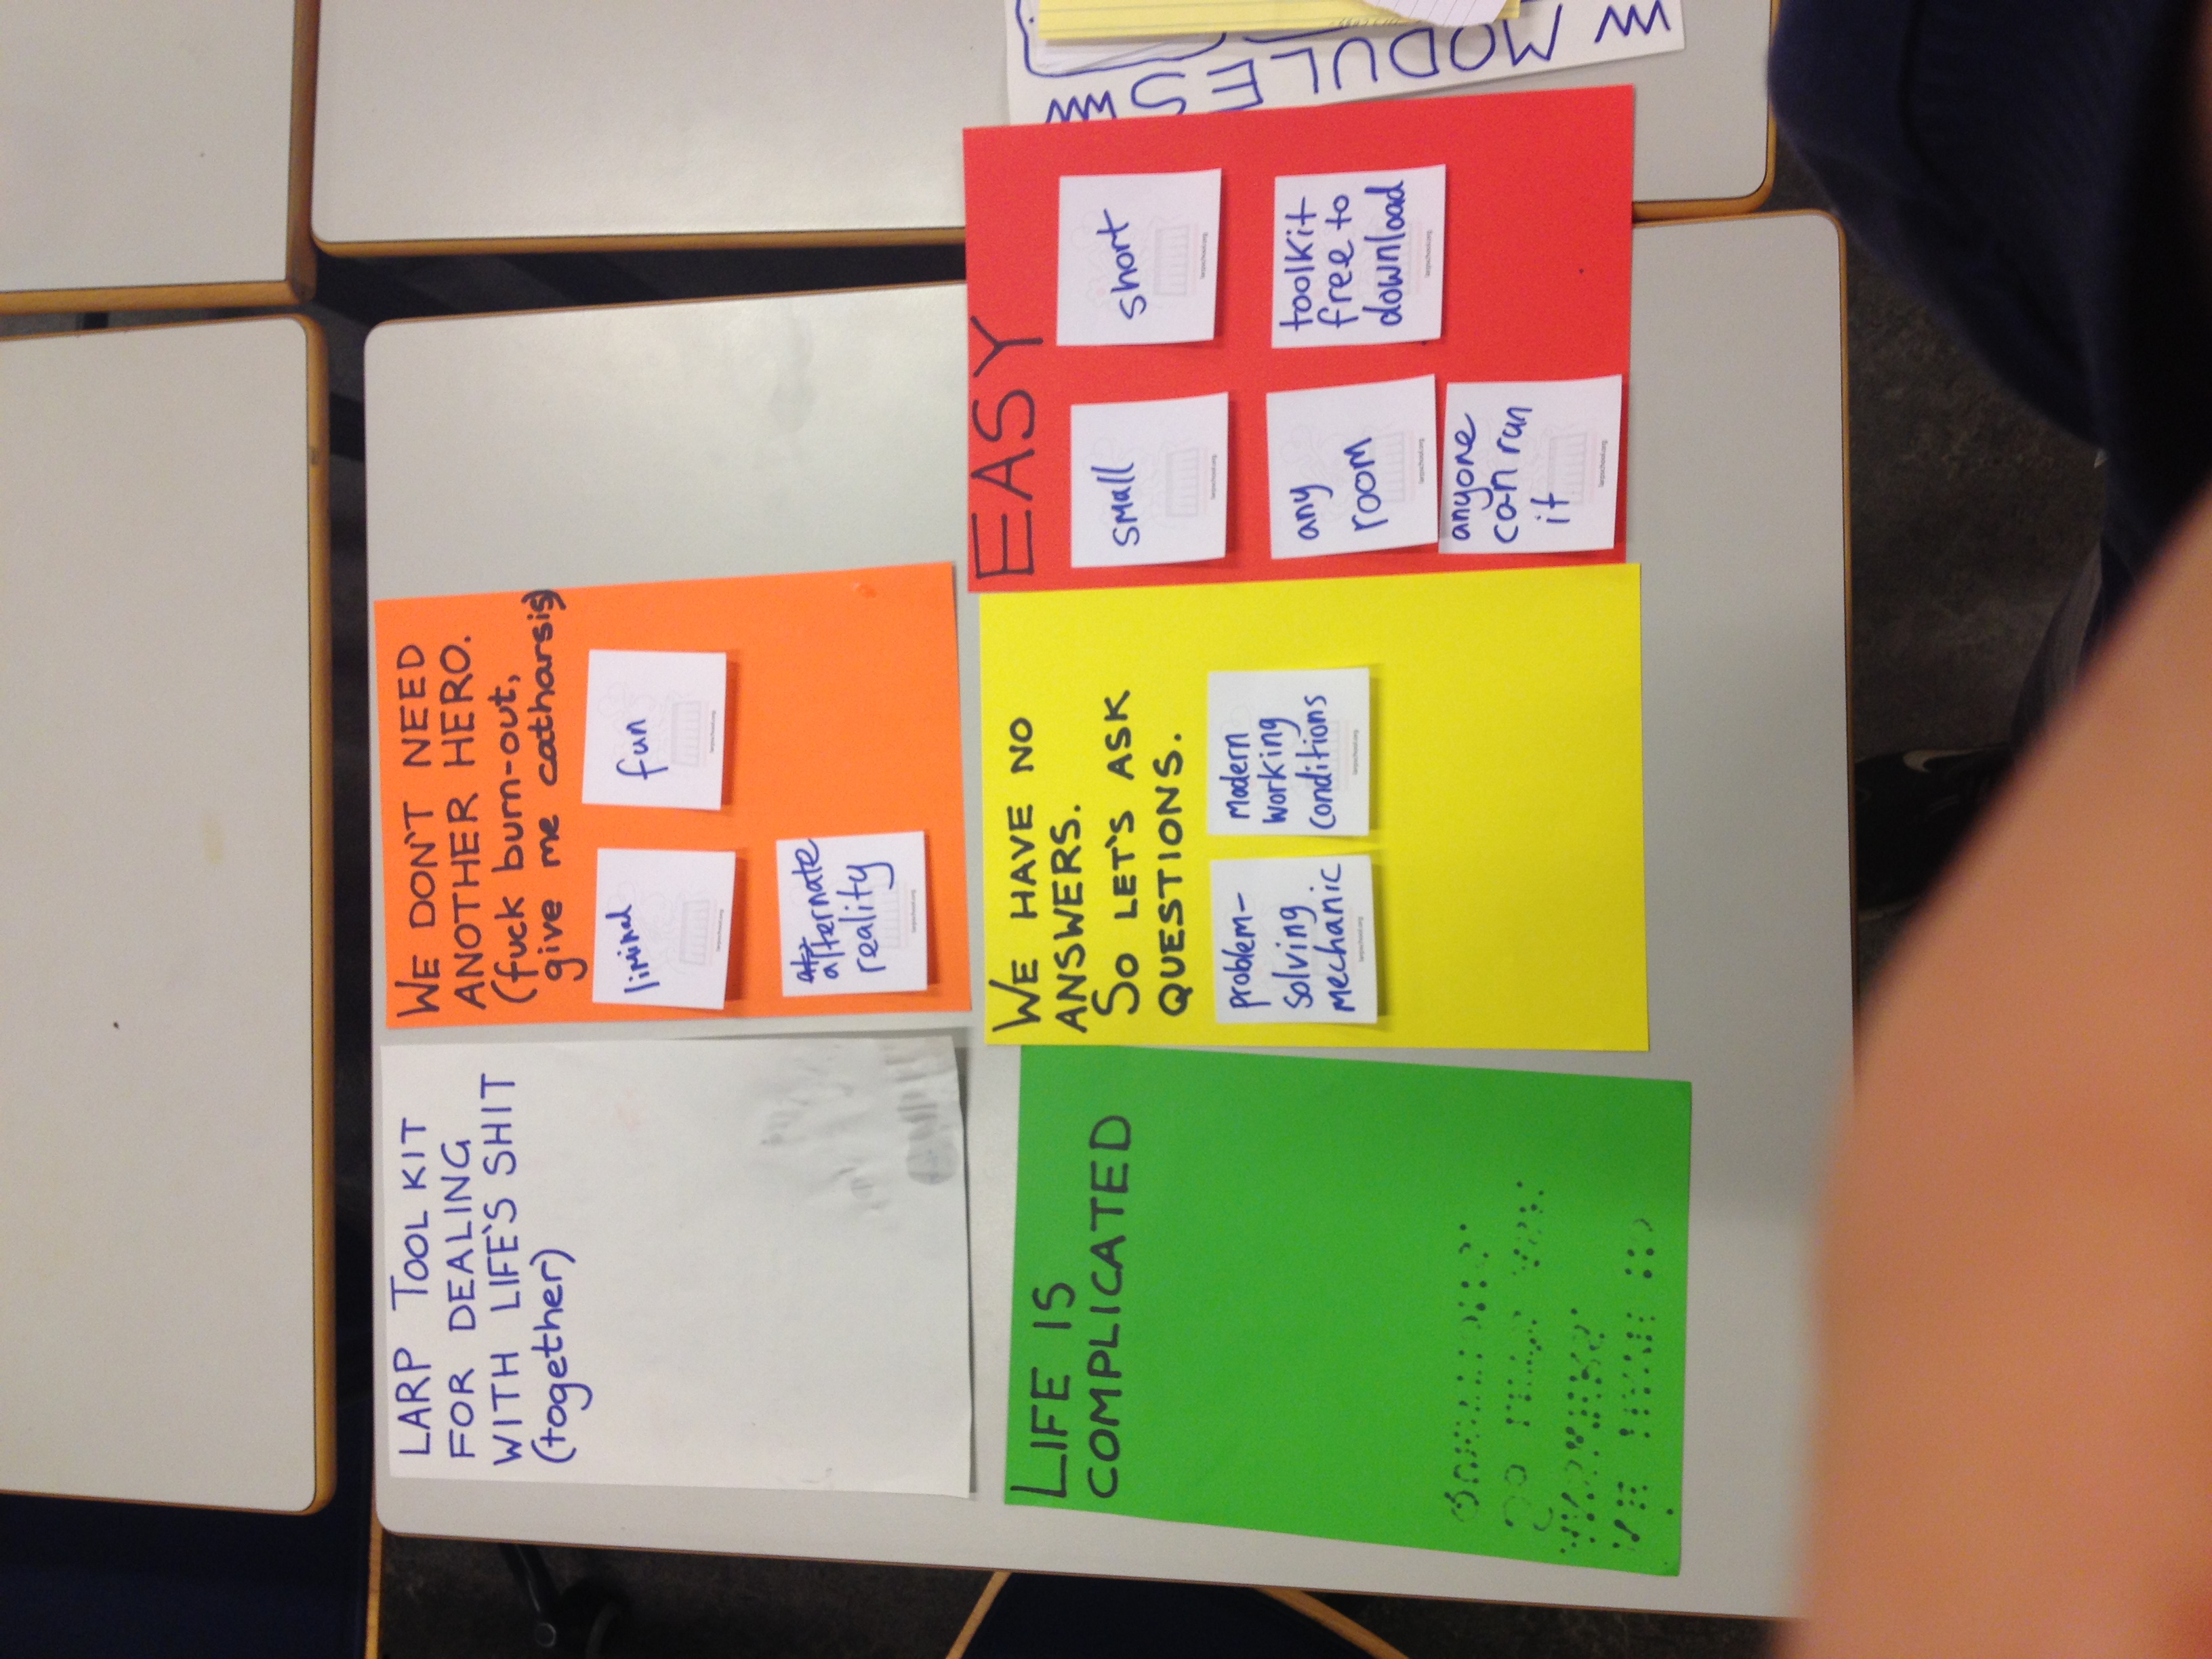 LARP TOOL KIT
FOR DEALING
WITH LIFE'S SHIT
(together)
WE DON'T NEED
ANOTHER HERO.
(fuck burn-out,
give me catharsis)
liminal
larpschool.org
fun
larpschool.org
alternate
reality
larpschool.org
LIFE IS
COMPLICATED
WE HAVE NO
ANSWERS.
SO LET'S ASK
QUESTIONS.
problem-
solving
mechanic
larpschool.org
modern
working
conditions
larpschool.org
EASY
small
larpschool.org
short
larpschool.org
any
room
larpschool.org
toolkit
free to
download
larpschool.org
anyone
can run
it
larpschool.org
MODULES